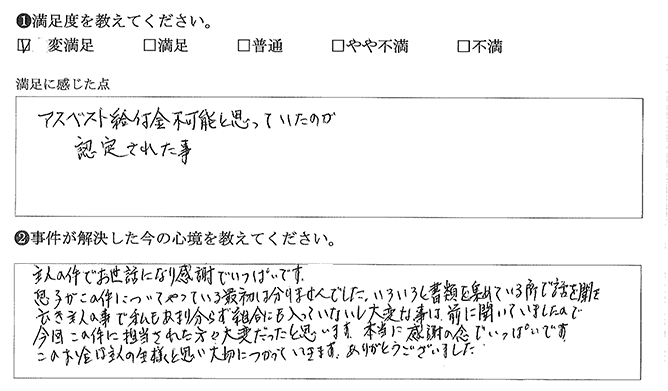 ❶満足度を教えてください。
☑ 変満足 □満足 □普通 □やや不満 □不満
満足に感じた点
アスベスト給付金不可能と思っていたのが
認定された事
❷事件が解決した今の心境を教えてください。
主人の件でお世話になり感謝でいっぱいです。
息子がこの件についてやっている最初は分りませんでした。いろいろと書類を集めている所で話を聞き
亡き主人の事で私もあまり分らず組合にも入っていないし大変な事は前に聞いていましたので
今回この件に担当された方々大変だったと思います。本当に感謝の念でいっぱいです
このお金は主人の生様と思い大切につかっていきます。ありがとうございました